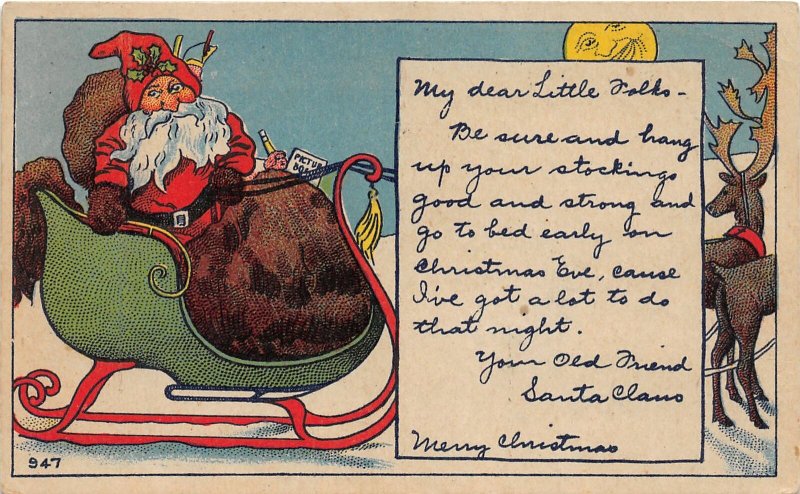 My dear Little Folks -
Be sure and hang
up your stockings
good and strong and
go to bed early on
Christmas Eve, cause
I've got a lot to do
that night.
Your Old Friend
Santa Claus
Merry Christmas
PICTURE
BOOK
947